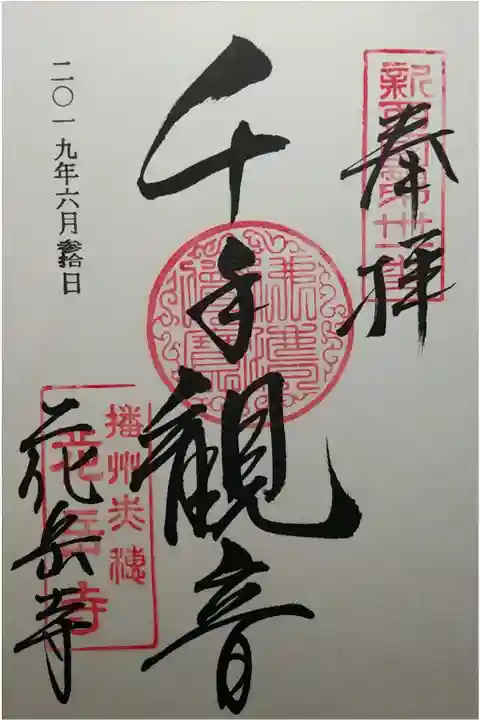 奉拝
新西国第卅一番
千手観音
二〇一九年六月参拾日
花岳寺
播州赤穂
花岳寺